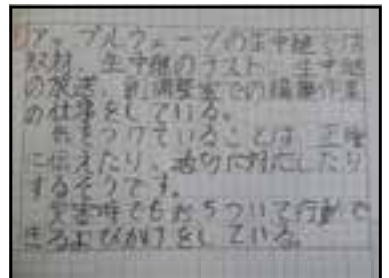 アップルウェーブの生中継では
取材、生中継のテスト、生中継
の放送、副調整室での編集作業
の仕事をしている。
気をつけていることは、正確
に伝えたり、適切に対応したり
するそうです。
災害時でもおちついて行動で
きるよびかけをしている。